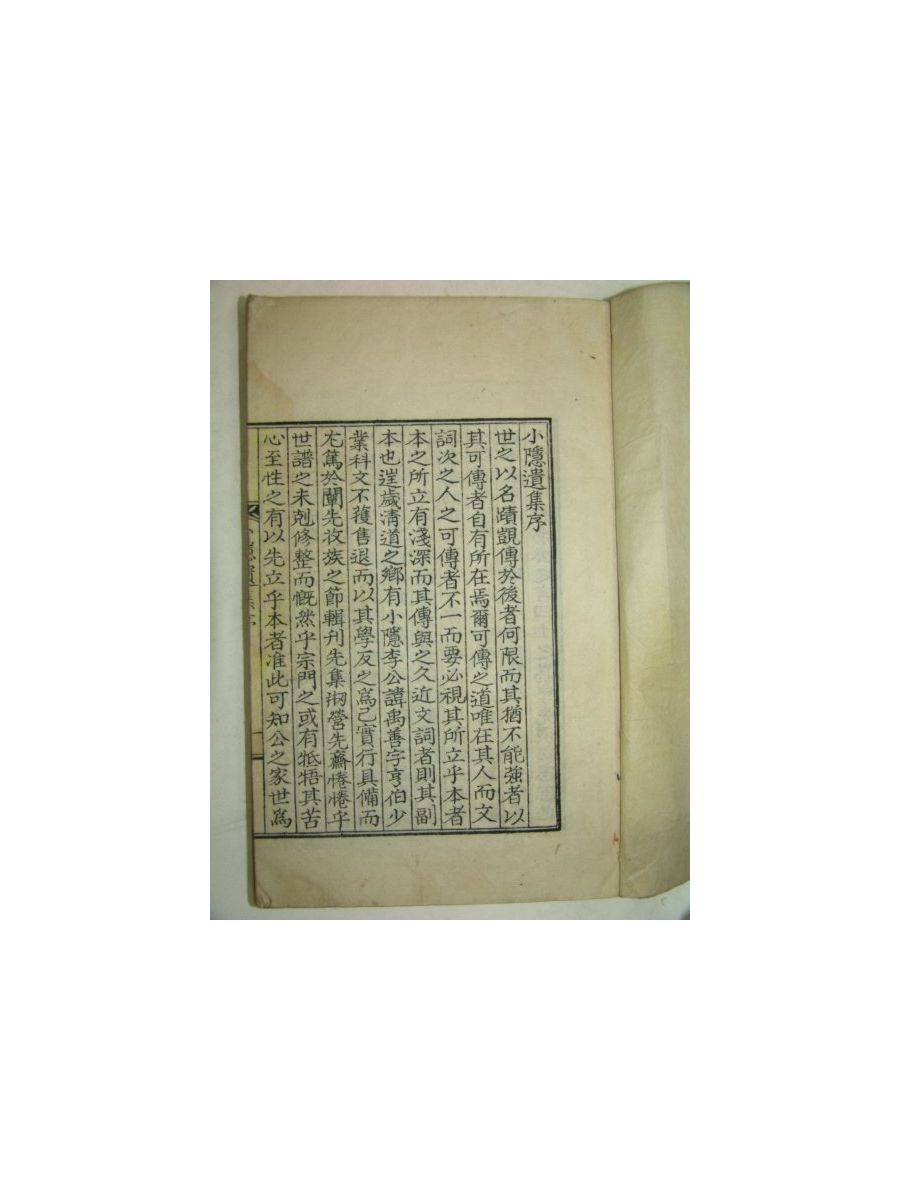 小隱遺集序
世之以名蹟覬傳於後者何限而其猶不能強者以
其可傳者自有所在焉爾可傳之道唯在其人而文
詞次之人之可傳者不一而要必視其所立乎本者
本之所立有淺深而其傳與之久近文詞者則其副
本也逞歲淸道之鄉有小隱李公諱禹善字亨伯少
業科文不獲售退而以其學反之爲己實行具備而
尤篤於闡先收族之節輯刊先集刱營先齋惓惓乎
世譜之未剋修整而慨然乎宗門之或有牴牾其苦
心至性之有以先立乎本者准此可知公之家世爲
隱遺集序